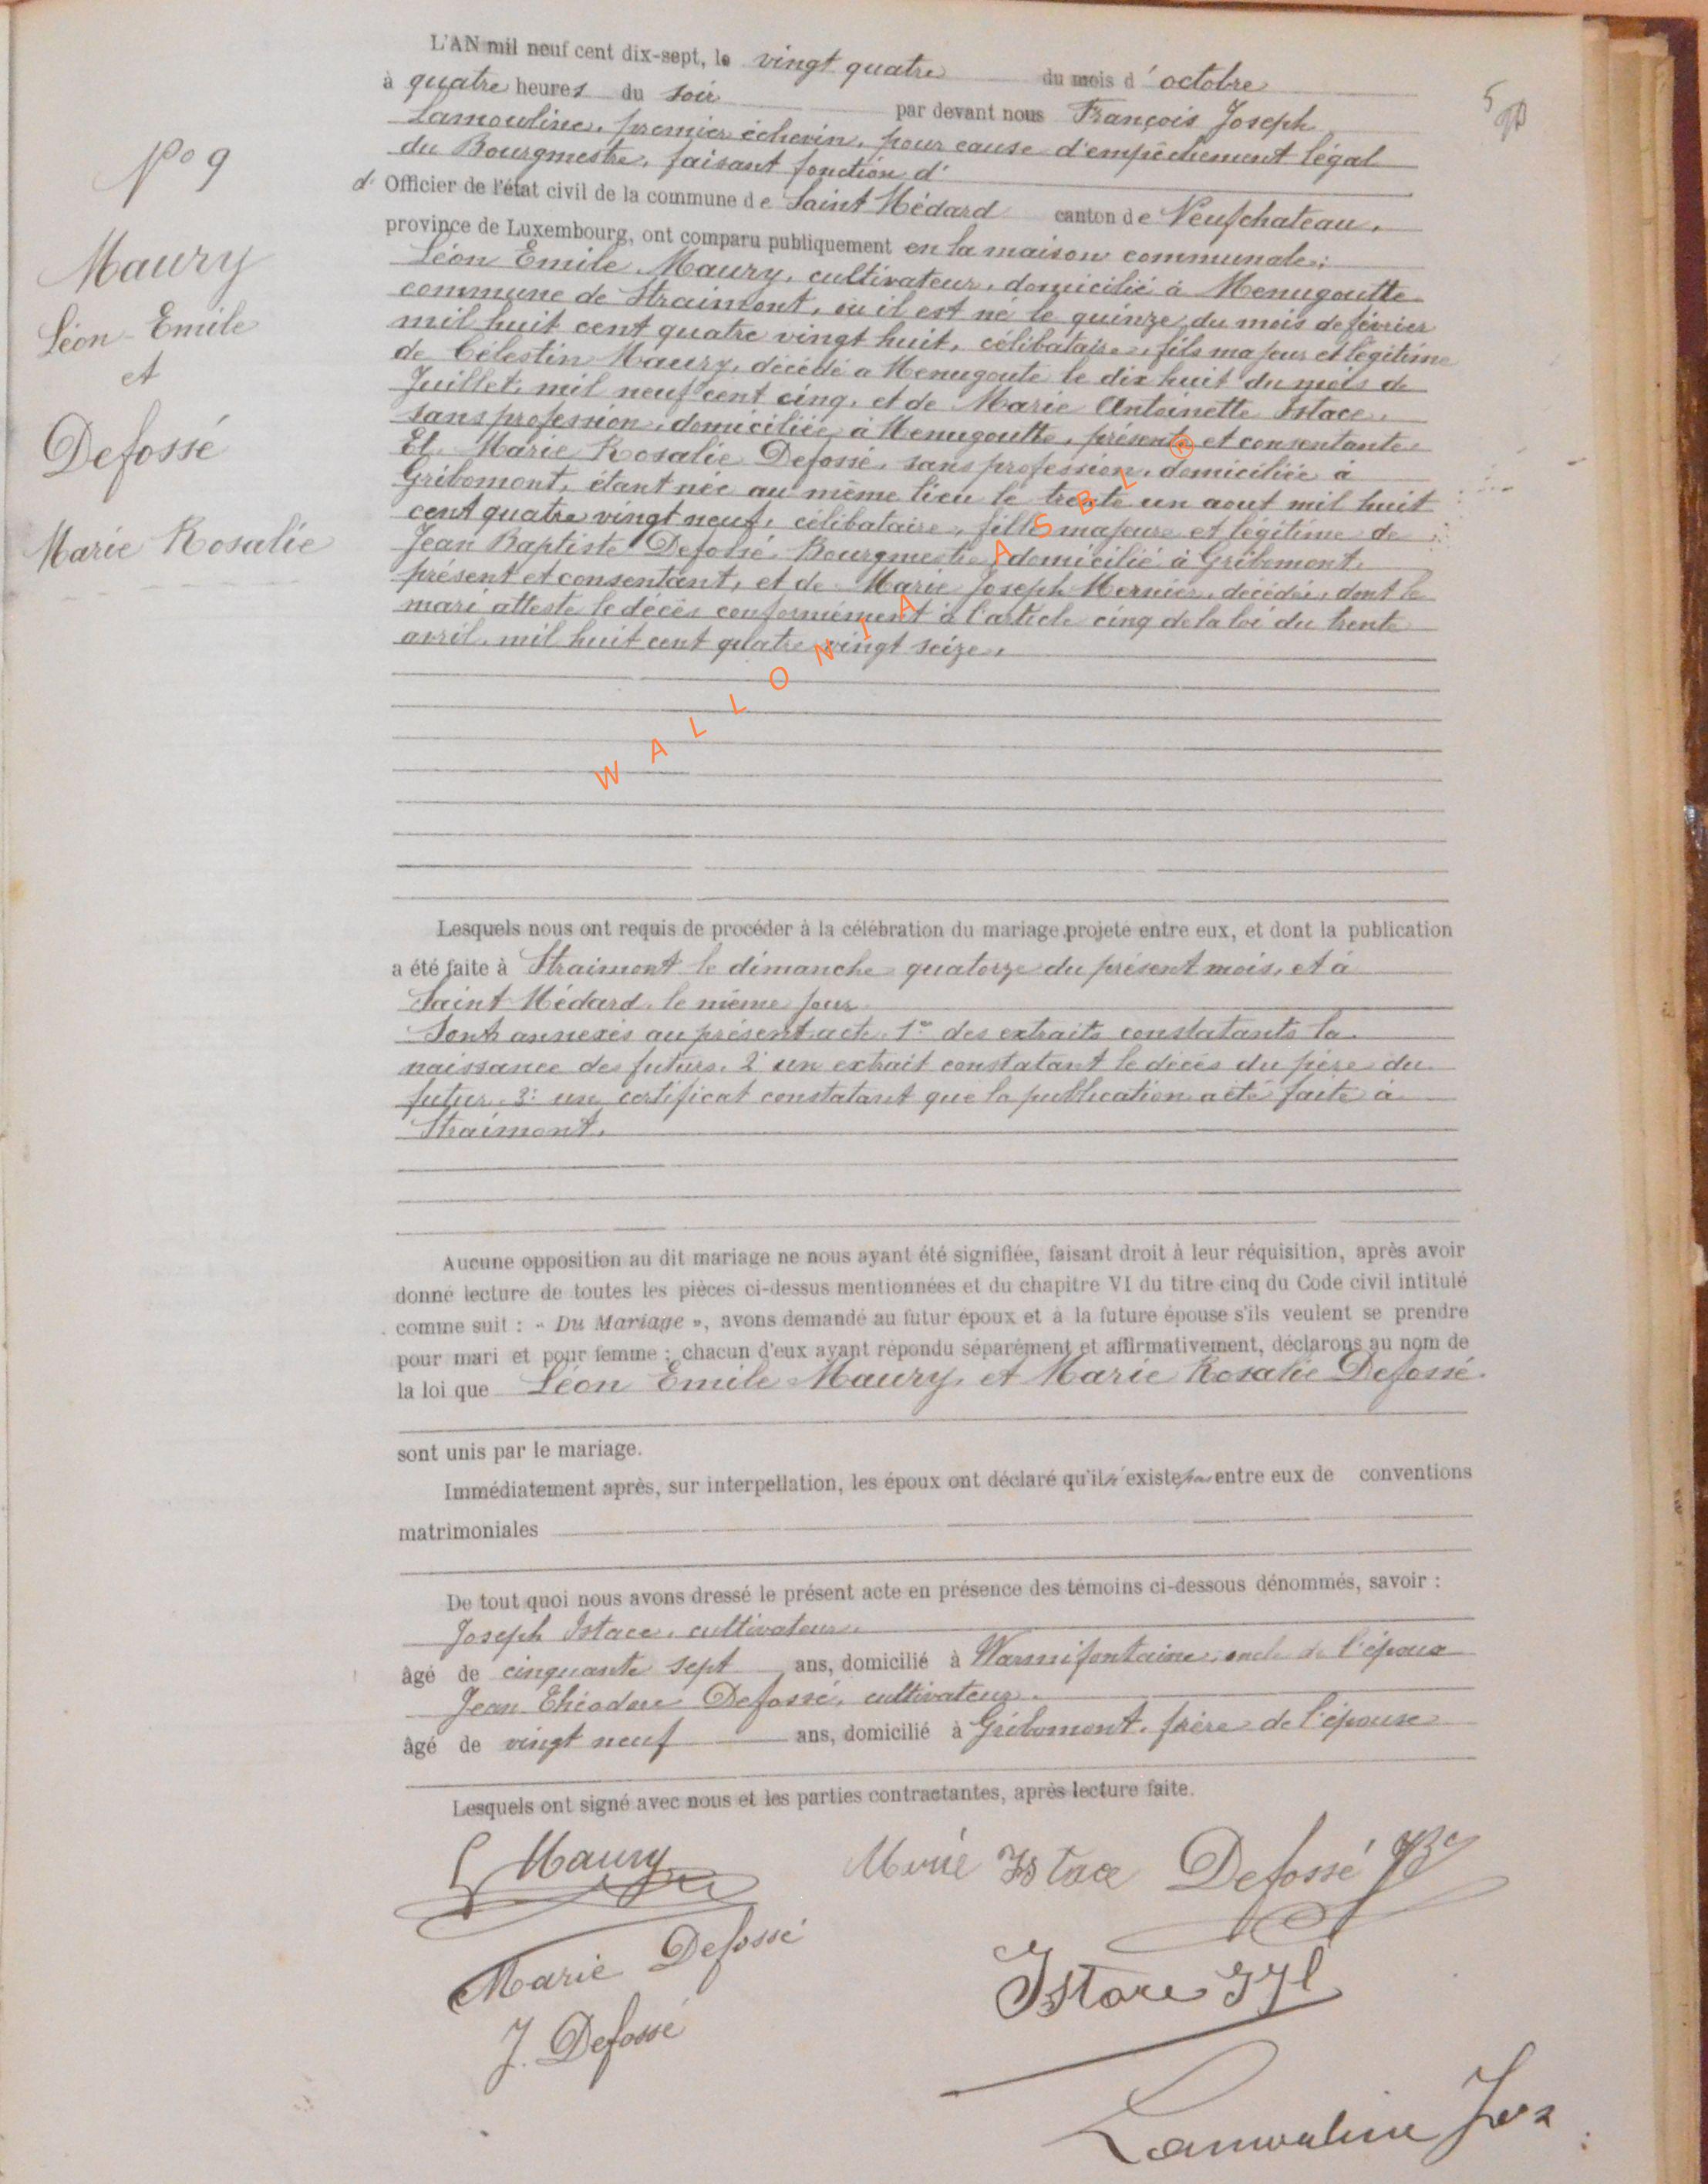 L'AN mil neuf cent dix-sept, le vingt quatre du mois d'octobre
à quatre heures du soir par devant nous François Joseph
Lamouline, premier échevin, pour cause d'empêchement légal
du Bourgmestre, faisant fonction d'
d' Officier de l'état civil de la commune de Saint Médard canton de Neufchateau,
province de Luxembourg, ont comparu publiquement en la maison communale:
Léon Emile Maury, cultivateur, domicilié à Menugoutte
commune de Straimont, où il est né le quinze du mois de février
mil huit cent quatre vingt huit, célibataire, fils majeur et légitime
de Célestin Maury, décédé a Menugoute le dix huit du mois de
Juillet, mil neuf cent cinq, et de Marie Antoinette Istace,
sans profession, domiciliée à Menugoutte, présente et consentante
Et Marie Rosalie Defossé, sans profession, domiciliée à
Gribomont, étant née au même lieu le trente un aout mil huit
cent quatre vingt neuf, célibataire, fille majeure et légitime de
Jean Baptiste Defossé Bourgmestre, domicilié à Gribomont,
présent et consentant, et de Marie Joseph Mernier, décédée, dont le
mari atteste le décès conformément à l'article cinq de la loi du trente
avril, mil huit cent quatre vingt seize.
WALLONIA ASBL ®
Nº 9
Maury
Léon-Emile
et
Defossé
Marie Rosalie
5
Lesquels nous ont requis de procéder à la célébration du mariage projeté entre eux, et dont la publication
a été faite à Straimont le dimanche quatorze du présent mois, et à
Saint Médard, le même jour
Sont annexés au présent acte 1º des extraits constatants la
naissance des futurs, 2º un extrait constatant le décès du père du
futur 3º un certificat constatant que la publication a été faite à
Straimont.
Aucune opposition au dit mariage ne nous ayant été signifiée, faisant droit à leur réquisition, après avoir
donné lecture de toutes les pièces ci-dessus mentionnées et du chapitre VI du titre cinq du Code civil intitulé
comme suit : « Du Mariage », avons demandé au futur époux et à la future épouse s'ils veulent se prendre
pour mari et pour femme ; chacun d'eux ayant répondu séparément et affirmativement, déclarons au nom de
la loi que Léon Emile Maury, et Marie Rosalie Defossé.
sont unis par le mariage.
Immédiatement après, sur interpellation, les époux ont déclaré qu'il n'existe pas entre eux de conventions
matrimoniales
De tout quoi nous avons dressé le présent acte en présence des témoins ci-dessous dénommés, savoir :
Joseph Istace, cultivateur,
âgé de cinquante sept ans, domicilié à Warmifontaine, oncle de l'époux
Jean Théodore Defossé, cultivateur.
âgé de vingt neuf ans, domicilié à Gribomont, frère de l'épouse
Lesquels ont signé avec nous et les parties contractantes, après lecture faite.
L Maury Marie Istace Defossé JB
Marie Defossé
Istace
J. Defossé
Lamouline